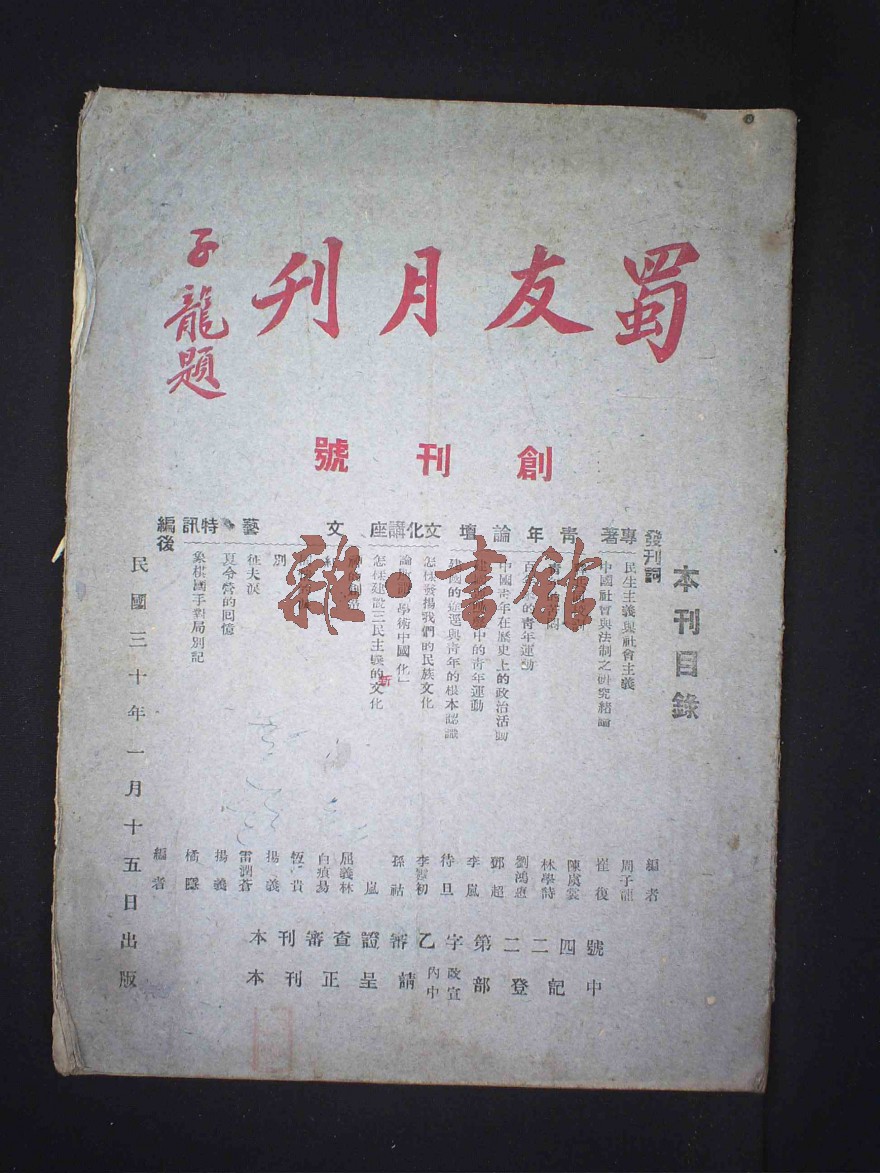 蜀友月刊
子龍題
創刊號
本刊目錄
發刊詞
編者
專著
民生主義與社會主義
周子龍
中國社會與法制之研究緒論
崔復
陳虞裳
青年論壇
林學詩
百年來的青年運動
劉鴻惠
中國青年在歷史上的政治活動
鄧超
中的青年運動
李嵐
建國的途運與青年的根本認識
待旦
文化講座
怎樣發揚我們的民族文化
李霞初
學術中國化」
孫祜
怎樣建設三民主義的新文化
嵐
文藝
屈義林
白痕易
別
恆貴
揚義
征夫淚
雷潤蒼
夏令營的回憶
揚義
特訊
象棋國手對局別記
橘隱
編後
編者
民國三十年一月十五日出版
本刊審查證審乙字第二二四號
本刊正呈請內政中宣部登記中
雜·書館